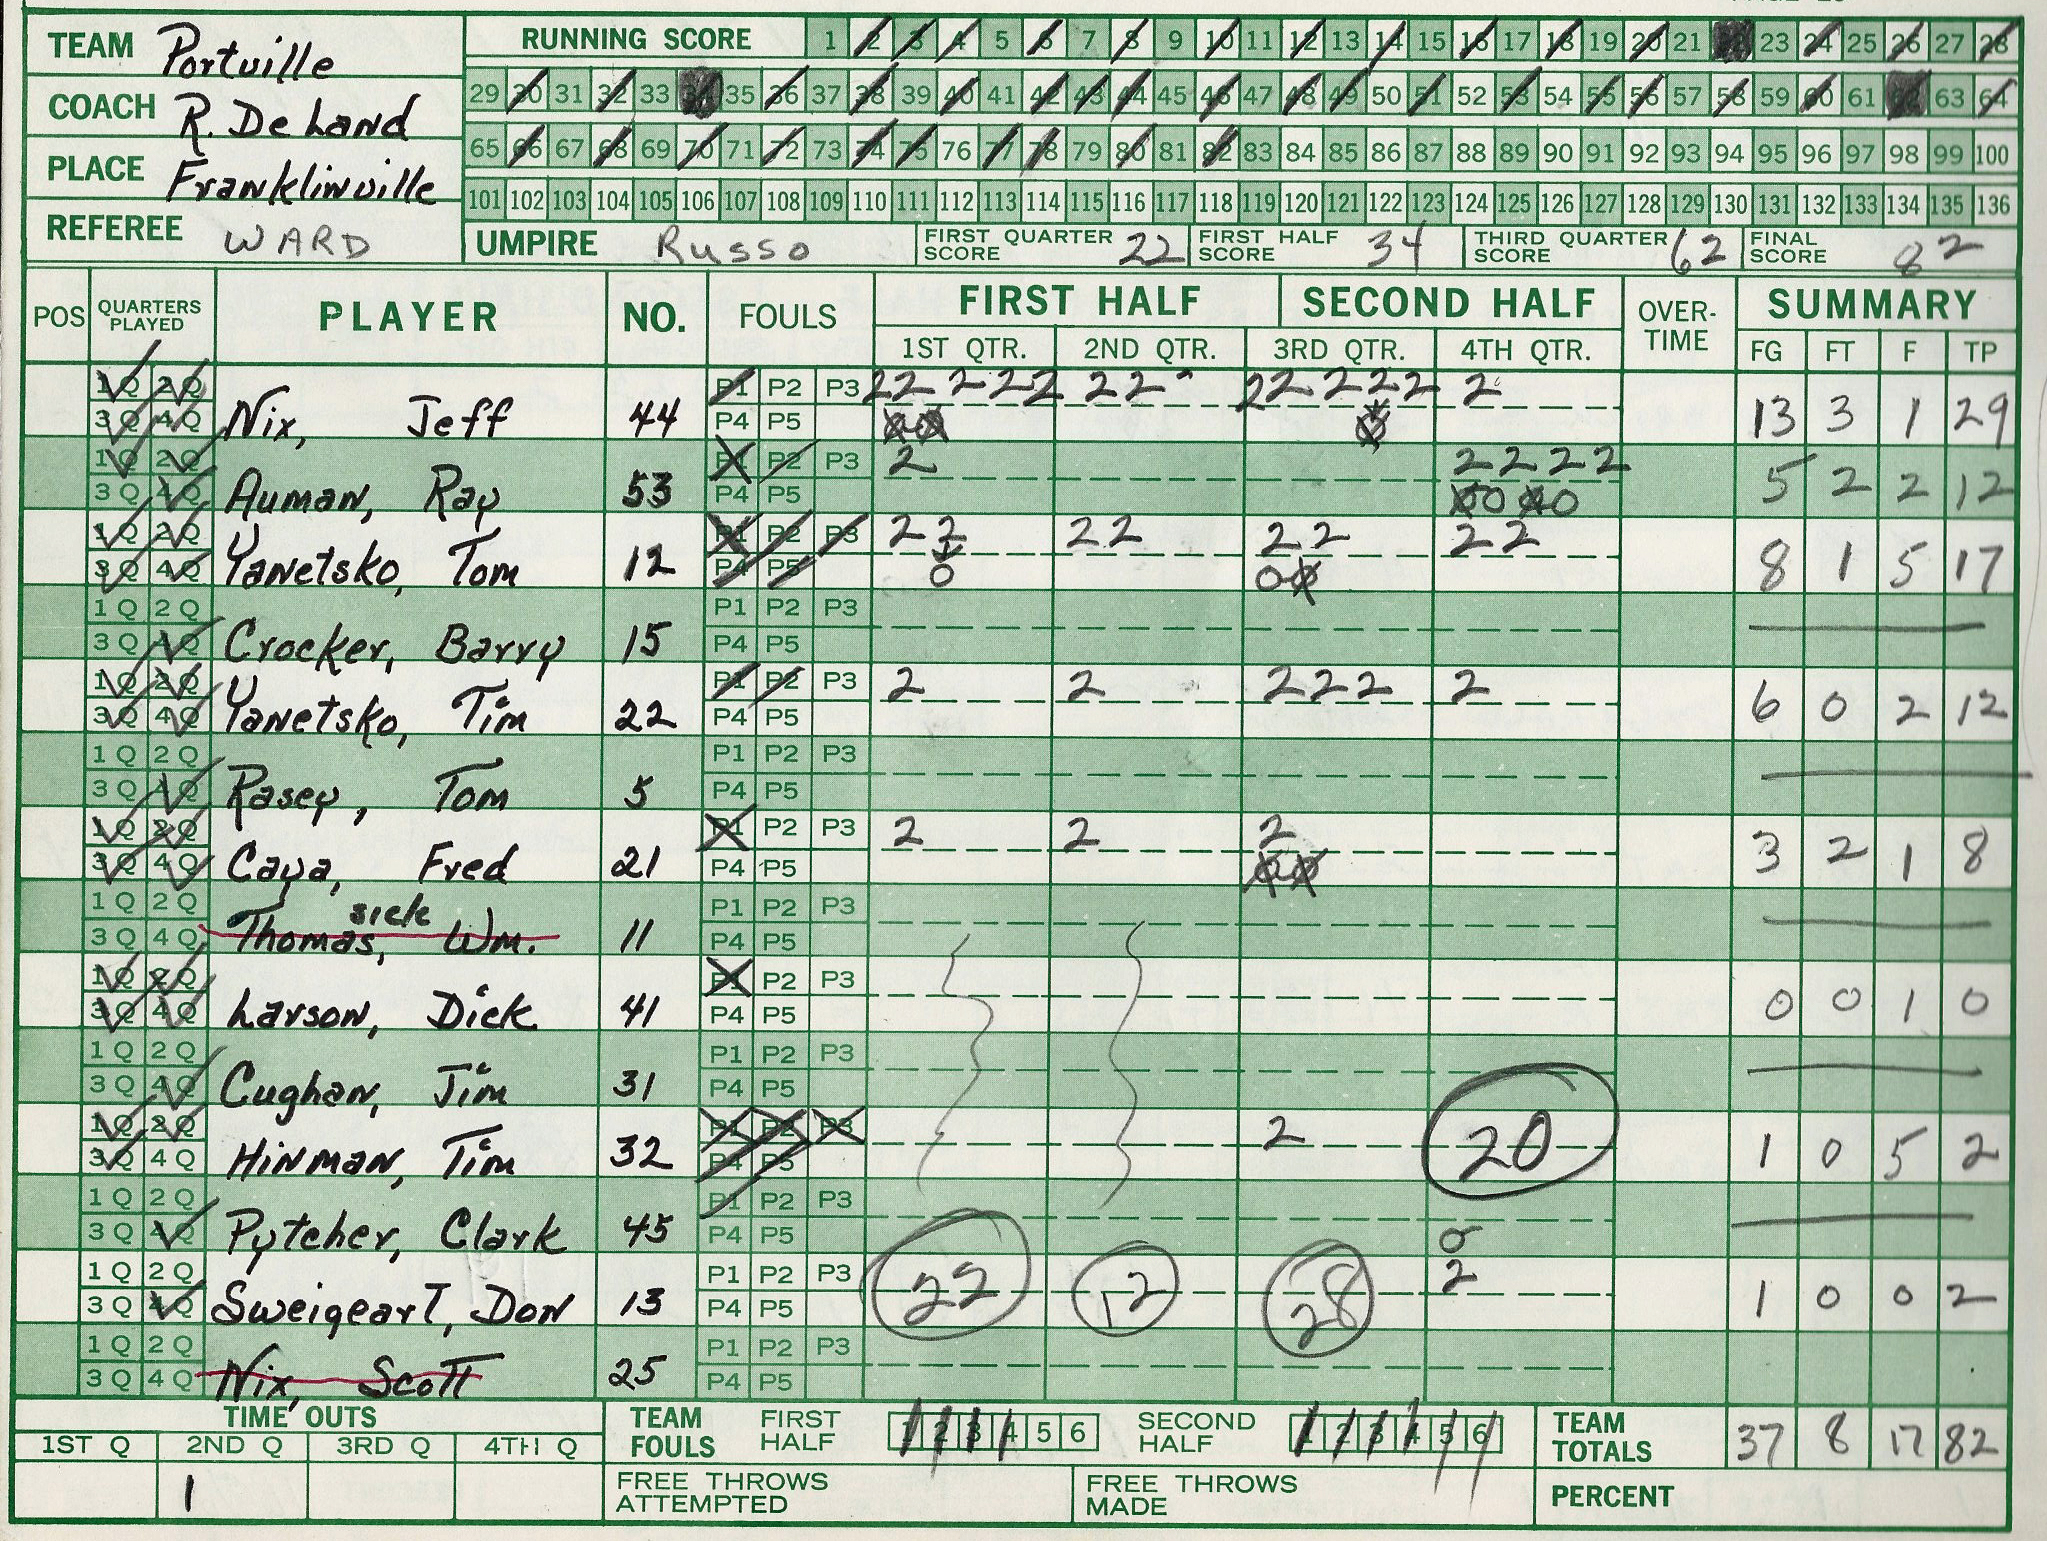 TEAM Portville
COACH R. DeLand
PLACE Franklinville
REFEREE WARD
RUNNING SCORE 1 2 3 4 5 6 7 8 9 10 11 12 13 14 15 16 17 18 19 20 21 23 24 25 26 27 28
29 30 31 32 33 34 35 36 37 38 39 40 41 42 43 44 45 46 47 48 49 50 51 52 53 54 55 56 57 58 59 60 61 62 63 64
65 66 67 68 69 70 71 72 73 74 75 76 77 78 79 80 81 82 83 84 85 86 87 88 89 90 91 92 93 94 95 96 97 98 99 100
101 102 103 104 105 106 107 108 109 110 111 112 113 114 115 116 117 118 119 120 121 122 123 124 125 126 127 128 129 130 131 132 133 134 135 136
UMPIRE Russo FIRST QUARTER SCORE 22 FIRST HALF SCORE 34 THIRD QUARTER SCORE 62 FINAL SCORE 82
POS QUARTERS PLAYED PLAYER NO. FOULS FIRST HALF SECOND HALF OVER-TIME SUMMARY
1ST QTR. 2ND QTR. 3RD QTR. 4TH QTR. FG FT F TP
1Q 2Q P1 P2 P3 2 2 2 2 2 2 2 2 2 2 2 2 2
3Q 4Q Nix, Jeff 44 P4 P5 0 0 0 13 3 1 29
1Q 2Q P1 P2 P3 2 2 2 2 2
3Q 4Q Auman, Ray 53 P4 P5 0 0 0 0 5 2 2 12
1Q 2Q P1 P2 P3 2 2 2 2 2 2 2 2
3Q 4Q Yanetsko, Tom 12 P4 P5 0 0 0 8 1 5 17
1Q 2Q P1 P2 P3
3Q 4Q Crocker, Barry 15 P4 P5
1Q 2Q P1 P2 P3 2 2 2 2 2 2
3Q 4Q Yanetsko, Tim 22 P4 P5 6 0 2 12
1Q 2Q P1 P2 P3
3Q 4Q Rasey, Tom 5 P4 P5
1Q 2Q P1 P2 P3 2 2 2
3Q 4Q Caya, Fred 21 P4 P5 0 0 3 2 1 8
1Q 2Q sick P1 P2 P3
3Q 4Q Thomas, Wm. 11 P4 P5
1Q 2Q P1 P2 P3
3Q 4Q Larson, Dick 41 P4 P5 0 0 1 0
1Q 2Q P1 P2 P3
3Q 4Q Cughan, Jim 31 P4 P5
1Q 2Q P1 P2 P3 2 20
3Q 4Q Hinman, Tim 32 P4 P5 1 0 5 2
1Q 2Q P1 P2 P3
3Q 4Q Pytcher, Clark 45 P4 P5 0
1Q 2Q P1 P2 P3 22 12 28 2
3Q 4Q Sweigeart, Don 13 P4 P5 1 0 0 2
1Q 2Q P1 P2 P3
3Q 4Q Nix, Scott 25 P4 P5
TIME OUTS TEAM FOULS FIRST HALF 1 2 3 4 5 6 SECOND HALF 1 2 3 4 5 6 TEAM TOTALS 37 8 17 82
1ST Q 2ND Q 3RD Q 4TH Q
1 FREE THROWS ATTEMPTED FREE THROWS MADE PERCENT